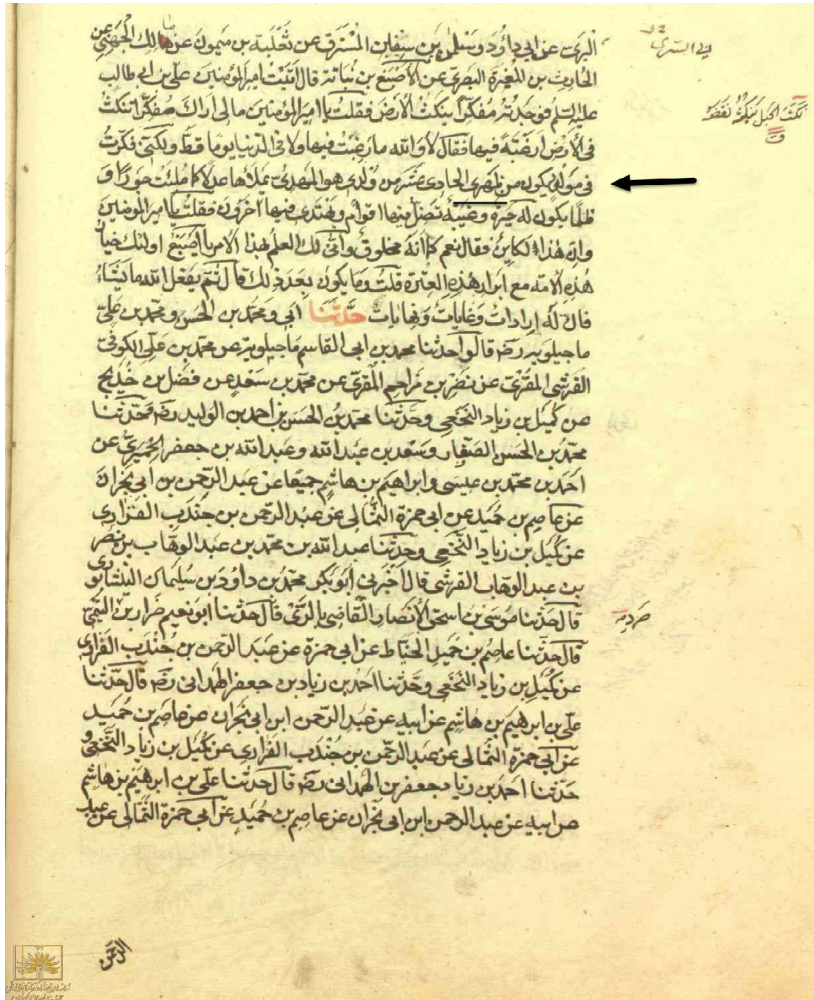 البرقى عن ابى داود وسليمن بن سفين المسترق عن ثعلبة بن ميمون عن مالك الجهنى عن
الحارث بن المغيرة البصرى عن الاصبغ بن نباتة قال اتيت امير المؤمنين على بن ابى طالب
عليه السلم فوجدته مفكرا ينكت الارض فقلت يا امير المؤمنين مالى اراك مفكرا تنكت
فى الارض ارغبة فيها فقال لا والله ما رغبت فيها ولا فى الدنيا يوما قط ولكنى فكرت
فى مولود يكون من ظهرى الحادى عشر من ولدى هو المهدى يملاها عدلا كما ملئت جورا و
ظلما يكون له حيرة وغيبة تضل فيها اقوام ويهتدى فيها آخرون فقلت يا امير المؤمنين
وان هذا لكاين فقال نعم كما انه مخلوق وانى لك العلم بهذا الامر يا اصبغ اولئك خيار
هذه الامة مع ابرار هذه العترة قلت وما يكون بعد ذلك قال ثم يفعل الله ما يشاء
فان له ارادات وغايات ونهايات حدثنا ابى ومحمد بن الحسن ومحمد بن على
ماجيلويه رضه قالوا حدثنا محمد بن ابى القاسم ماجيلويه عن محمد بن على الكوفى
القرشى المقرى عن نصر بن مزاحم المنقرى عن محمد بن سعد عن فضل بن خديج
عن كميل بن زياد النخعى وحدثنا محمد بن الحسن بن احمد بن الوليد رضه قال حدثنا
محمد بن الحسن الصفار وسعد بن عبد الله وعبد الله بن جعفر الحميرى عن
احمد بن محمد بن عيسى وابراهيم بن هاشم جميعا عن عبد الرحمن بن ابى نجران
عن عاصم بن حميد عن ابى حمزة الثمالى عن عبد الرحمن بن جندب الفزارى
عن كميل بن زياد النخعى وحدثنا عبد الله بن محمد بن عبد الوهاب بن نصر
بن عبد الوهاب القرشى قال اخبرنى ابو بكر محمد بن داود بن سليمان النيشابورى
قال حدثنا موسى بن اسحق الانصارى القاضى بالرى قال حدثنا ابو نعيم ضرار بن التيمى
قال حدثنا عاصم بن حميد الحناط عن ابى حمزة عن عبد الرحمن بن جندب الفزارى
عن كميل بن زياد النخعى وحدثنا احمد بن زياد بن جعفر الهمدانى رضه قال حدثنا
على بن ابرهيم بن هاشم عن ابيه عن عبد الرحمن ابن ابى نجران عن عاصم بن حميد
عن ابى حمزة الثمالى عن عبد الرحمن بن جندب الفزارى عن كميل بن زياد النخعى و
حدثنا احمد بن زياد جعفر بن الهمدانى رضه قال حدثنا على بن ابرهيم بن هاشم
عن ابيه عن عبد الرحمن ابن ابى نجران عن عاصم بن حميد عن ابى حمزة الثمالى عن عبد
الرحمن